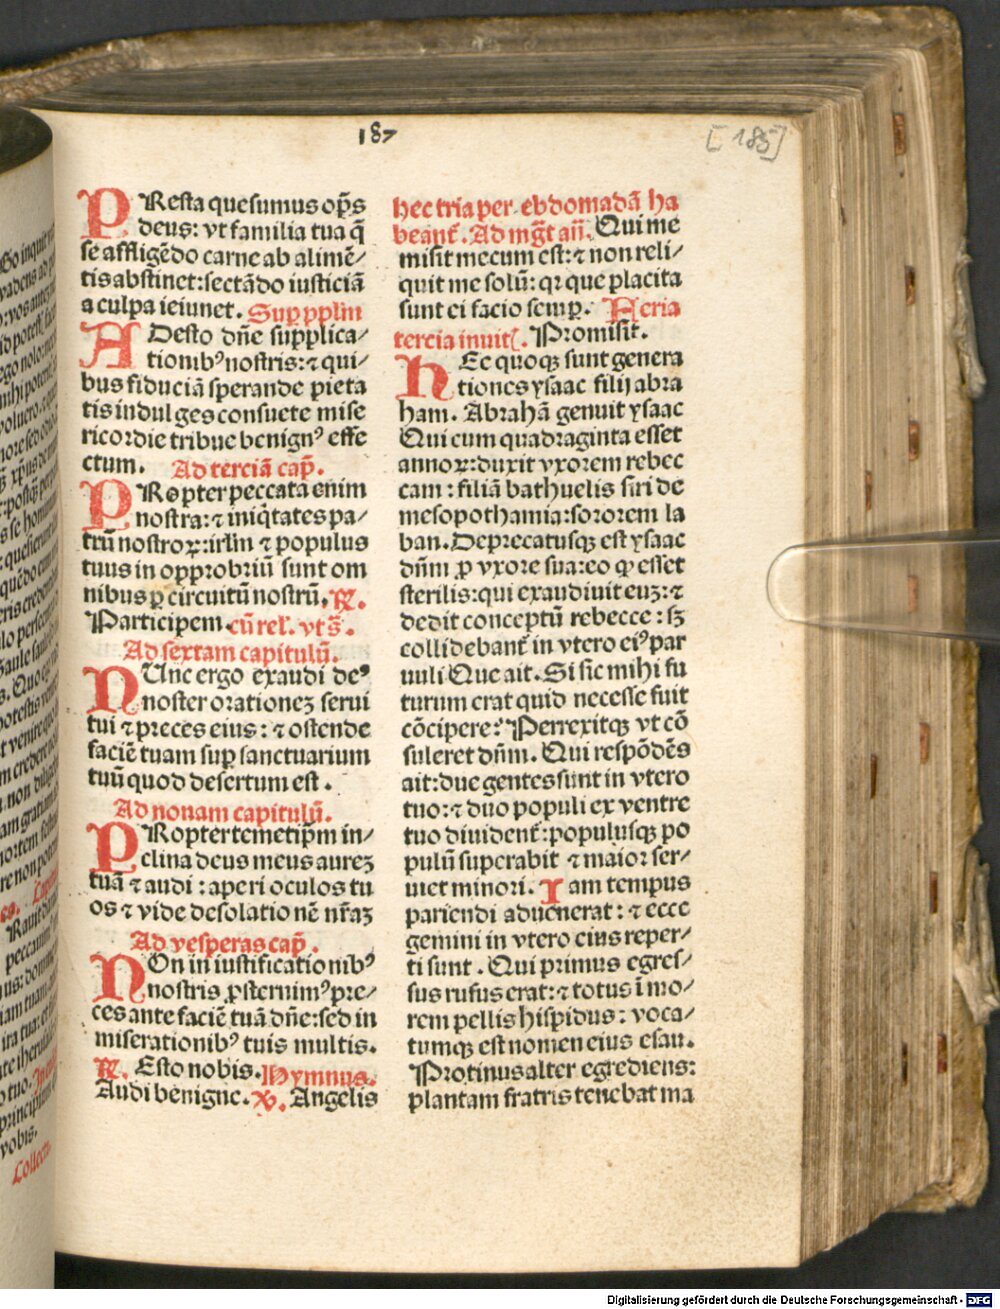 187
[185]
PResta quesumus op̄s
deus: vt familia tua q̄
se affligēdo carne ab alimē/
tis abstinet: sectādo iusticiā
a culpa ieiunet. Suꝑ pplm
ADesto dn̄e supplica/
tionibꝰ nostris: ⁊ qui/
bus fiduciā sperande pieta
tis indulges consuete mise
ricordie tribue benignꝰ effe
ctum. Ad terciā cap̄.
PRopter peccata enim
nostra: ⁊ iniq̇tates pa/
trū nostroꝝ: irlm̄ ⁊ populus
tuus in opprobriū sunt om
nibus ꝑ circuitū nostrū. ꝶ.
Participem. cū rel̄. vt s̄.
Ad sextam capitulū.
NUnc ergo exaudi deꝰ
noster orationeʒ serui
tui ⁊ preces eius: ⁊ ostende
faciē tuam suꝑ sanctuarium
tuū quod desertum est.
Ad nonam capitulū.
PRopter temetip̄m in/
clina deus meus aureʒ
tuā ⁊ audi: aperi oculos tu
os ⁊ vide desolationē nr̄aʒ
Ad vesperas cap̄.
NOn in iustificationibꝰ
nostris ꝓsternimꝰ pre/
ces ante faciē tuā dn̄e: sed in
miserationibꝰ tuis multis.
ꝶ. Esto nobis. Hymnus.
Audi benigne. ℣. Angelis
hec tria per ebdomadā ha
beant̄. Ad mgt̄ an̄. Qui me
misit mecum est: ⁊ non reli/
quit me solū: qꝛ que placita
sunt ei facio semꝑ. Feria
tercia inuit̄. Promisit.
HEc quoqꝫ sunt genera
tiones ysaac filij abra
ham. Abrahā genuit ysaac
Qui cum quadraginta esset
annoꝝ: duxit vxorem rebec
cam: filiā bathuelis siri de
mesopothamia: sororem la
ban. Deprecatusqꝫ est ysaac
dn̄m ꝓ vxore sua: eo ꝙ esset
sterilis: qui exaudiuit euʒ: ⁊
dedit conceptū rebecce: sꝫ
collidebant̄ in vtero eiꝰ par
uuli Que ait. Si sic mihi fu
turum erat quid necesse fuit
cōcipere? Perrexitqꝫ vt cō
suleret dn̄m. Qui respōdēs
ait: due gentes sunt in vtero
tuo: ⁊ duo populi ex ventre
tuo diuident̄: populusqꝫ po
pulū superabit ⁊ maior ser/
uiet minori. Iam tempus
pariendi aduenerat: ⁊ ecce
gemini in vtero eius reper/
ti sunt. Qui primus egres/
sus rufus erat: ⁊ totus ī mo/
rem pellis hispidus: voca/
tumqꝫ est nomen eius esau.
Protinus alter egrediens:
plantam fratris tenebat ma
Digitalisierung gefördert durch die Deutsche Forschungsgemeinschaft - DFG